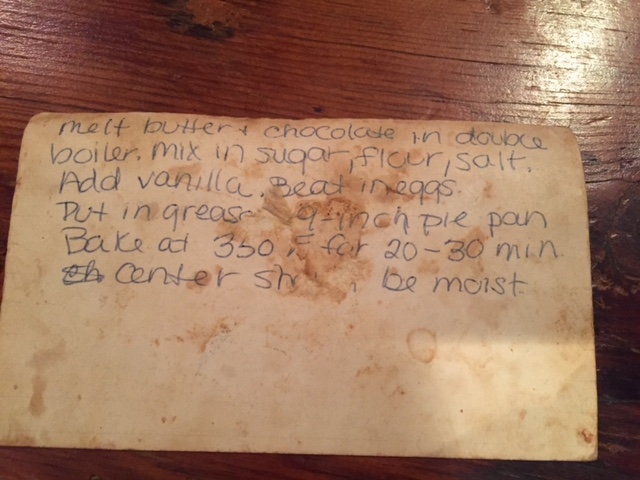 melt butter + chocolate in double
boiler. Mix in sugar, flour, salt.
Add vanilla. Beat in eggs.
Put in 9-inch pie pan
Bake at 350 F for 20-30 min.
center be moist